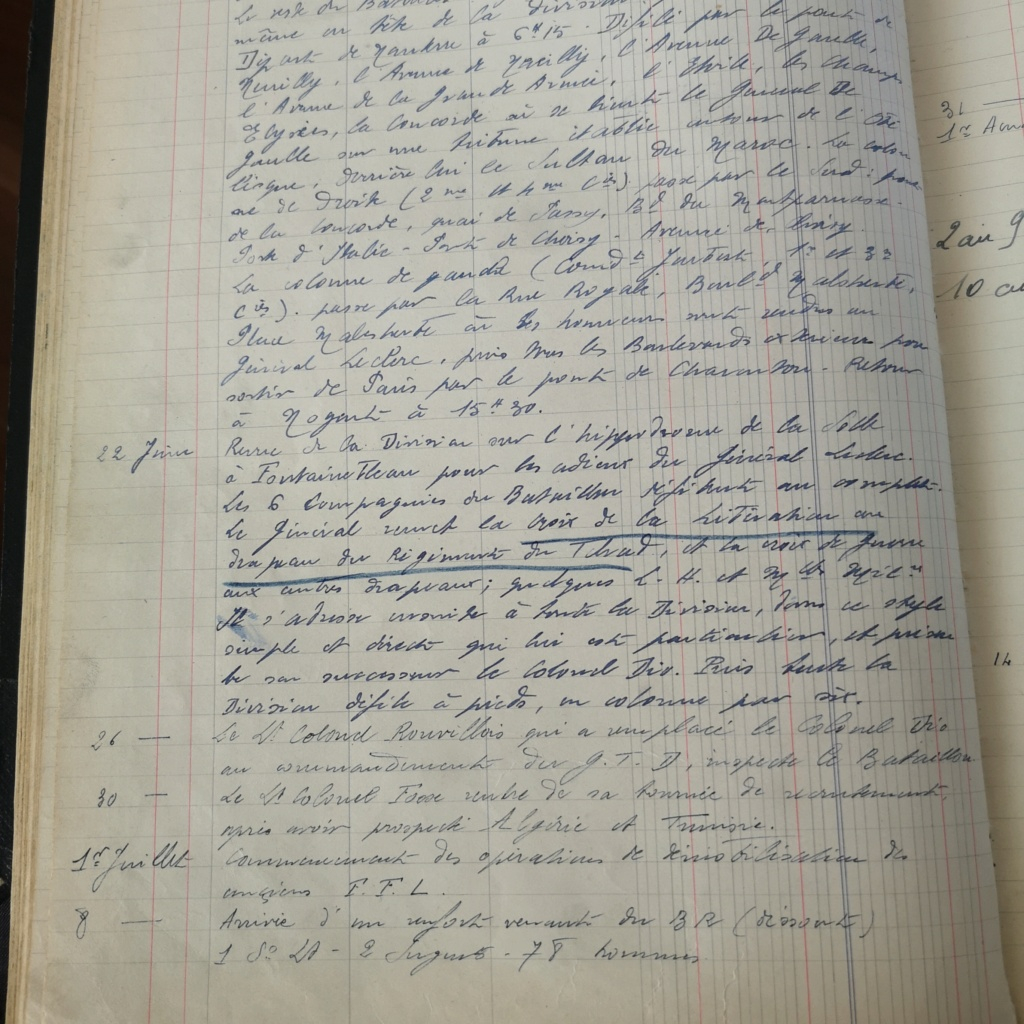 Le reste du Bataillon
même en tête de la division.
Départ de Nanterre à 6ʰ15. Défilé par le pont de
Neuilly, l'Avenue de Neuilly, l'Avenue De Gaulle,
l'Avenue de la Grande Armée, l'Etoile, les Champs
Elysées, la Concorde où se tient le Général De
Gaulle sur une tribune établie autour de l'Obé
lisque, derrière lui le Sultan du Maroc. La colon
ne de Droite (2 me et 4 me Cies) passe par le Sud : pont
de la Concorde, quai de Passy, Bd du Montparnasse.
Porte d'Italie - Porte de Choisy - Avenue de Choisy.
La colonne de gauche (Comdt 1e et 3e
Cies). passe par la Rue Royale, Boulд Malesherbe,
Place Malesherbe où les honneurs sont rendus au
Général Leclerc, puis tous les Boulevards extérieurs pour
sortir de Paris par le pont de Charenton. Retour
à Nogent à 15ʰ30.
22 Juin Revue de la Division sur l'hippodrome de la Solle
à Fontainebleau pour les adieux du Général Leclerc.
Les 6 Compagnies du Bataillon défilent au complet.
Le Général remet la croix de la Libération au
drapeau du Régiment du Tchad, et la croix de guerre
aux autres drapeaux; quelques L.H. et Mlles Milres
Il s'adresse ensuite à toute la Division, dans ce style
simple et direct qui lui est particulier, et présen
te son successeur le Colonel Dio. Puis toute la
Division défile à pieds, en colonne par six.
26 — Le Lt Colonel Rouvillois qui a remplacé le Colonel Dio
au commandement du G.T.D, inspecte le Bataillon
30 — Le Lt Colonel Fosse rentre de sa tournée de recrutement,
après avoir prospecté Algérie et Tunisie.
1er Juillet Commencement des opérations de démobilisation des
anciens F.F.L.
8 — Arrivée d'un renfort venant du BR (dissout)
1 S/s Lt - 2 Sergents - 78 hommes
31 —
1er
10
14